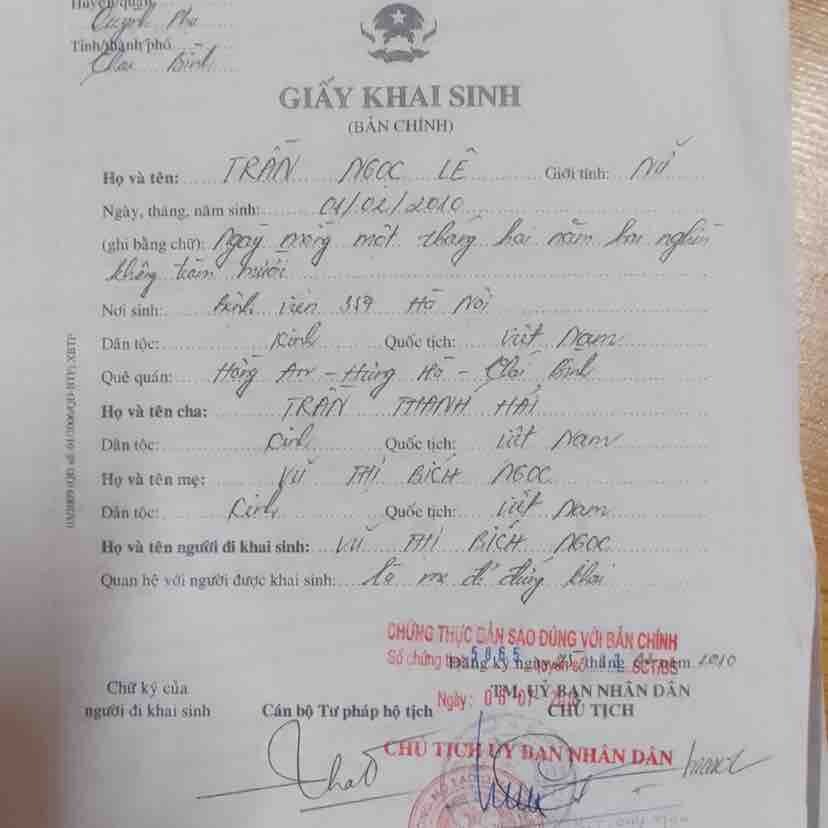 Huyện/quận
Quỳnh Phụ
Tỉnh/thành phố
Thái Bình
GIẤY KHAI SINH
(BẢN CHÍNH)
Họ và tên: TRẦN NGỌC LÊ Giới tính: Nữ
Ngày, tháng, năm sinh: 01/02/2010
(ghi bằng chữ): Ngày mồng một tháng hai năm hai nghìn
không trăm mười
Nơi sinh: Bệnh viện 354 Hà Nội
Dân tộc: Kinh Quốc tịch: Việt Nam
Quê quán: Hồng An - Hưng Hà - Thái Bình
Họ và tên cha: TRẦN THANH HẢI
Dân tộc: Kinh Quốc tịch: Việt Nam
Họ và tên mẹ: VŨ THỊ BÍCH NGỌC
Dân tộc: Kinh Quốc tịch: Việt Nam
Họ và tên người đi khai sinh: VŨ THỊ BÍCH NGỌC
Quan hệ với người được khai sinh: là mẹ đẻ đứng khai
CHỨNG THỰC BẢN SAO ĐÚNG VỚI BẢN CHÍNH
Số chứng thực 5865 SCT/BS
Đăng ký ngày tháng năm 2010
Ngày:
Chữ ký của
người đi khai sinh
Cán bộ Tư pháp hộ tịch
TM. UỶ BAN NHÂN DÂN
CHỦ TỊCH
CHỦ TỊCH ỦY BAN NHÂN DÂN